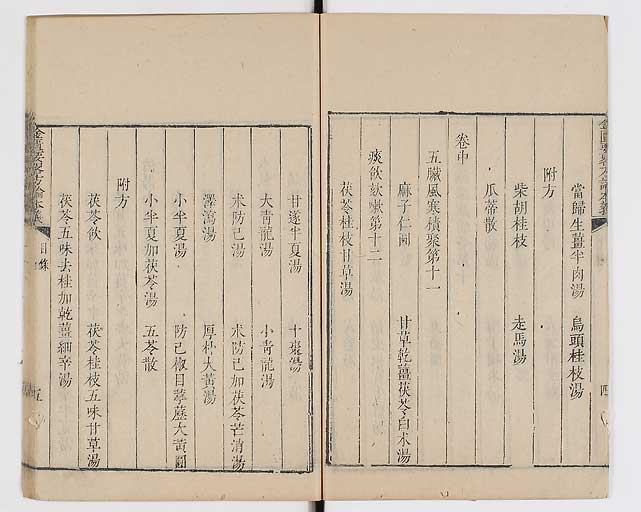 當歸生薑羊肉湯 烏頭桂枝湯
附方
柴胡桂枝 走馬湯
瓜蒂散
卷中
五臟風寒積聚第十一
麻子仁圓 甘草乾薑茯苓白朮湯
痰飲欬嗽第十二
茯苓桂枝甘草湯
四
甘遂半夏湯 十棗湯
大靑龍湯 小靑龍湯
木防己湯 木防己加茯苓芒消湯
澤瀉湯 厚朴大黃湯
小半夏湯 防己椒目葶藶大黃圓
小半夏加茯苓湯 五苓散
附方
茯苓飲 茯苓桂枝五味甘草湯
茯苓五味去桂加乾薑細辛湯
金匱要略方論本義 目錄 五